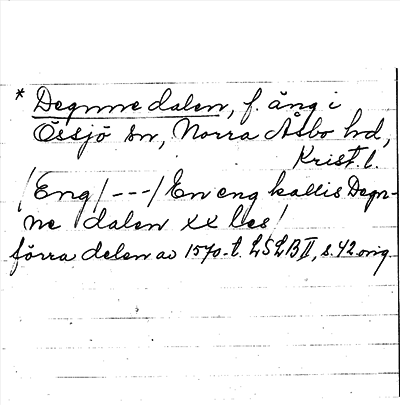 * Degnne dalen, f. äng i
Össjö sn, Norra Åsbo hd,
Krist. l.
/Eng/ --- / En eng kallis Degn-
ne dalen xx les /
förra delen av 1570-t. LSLB II, s. 42 orig.